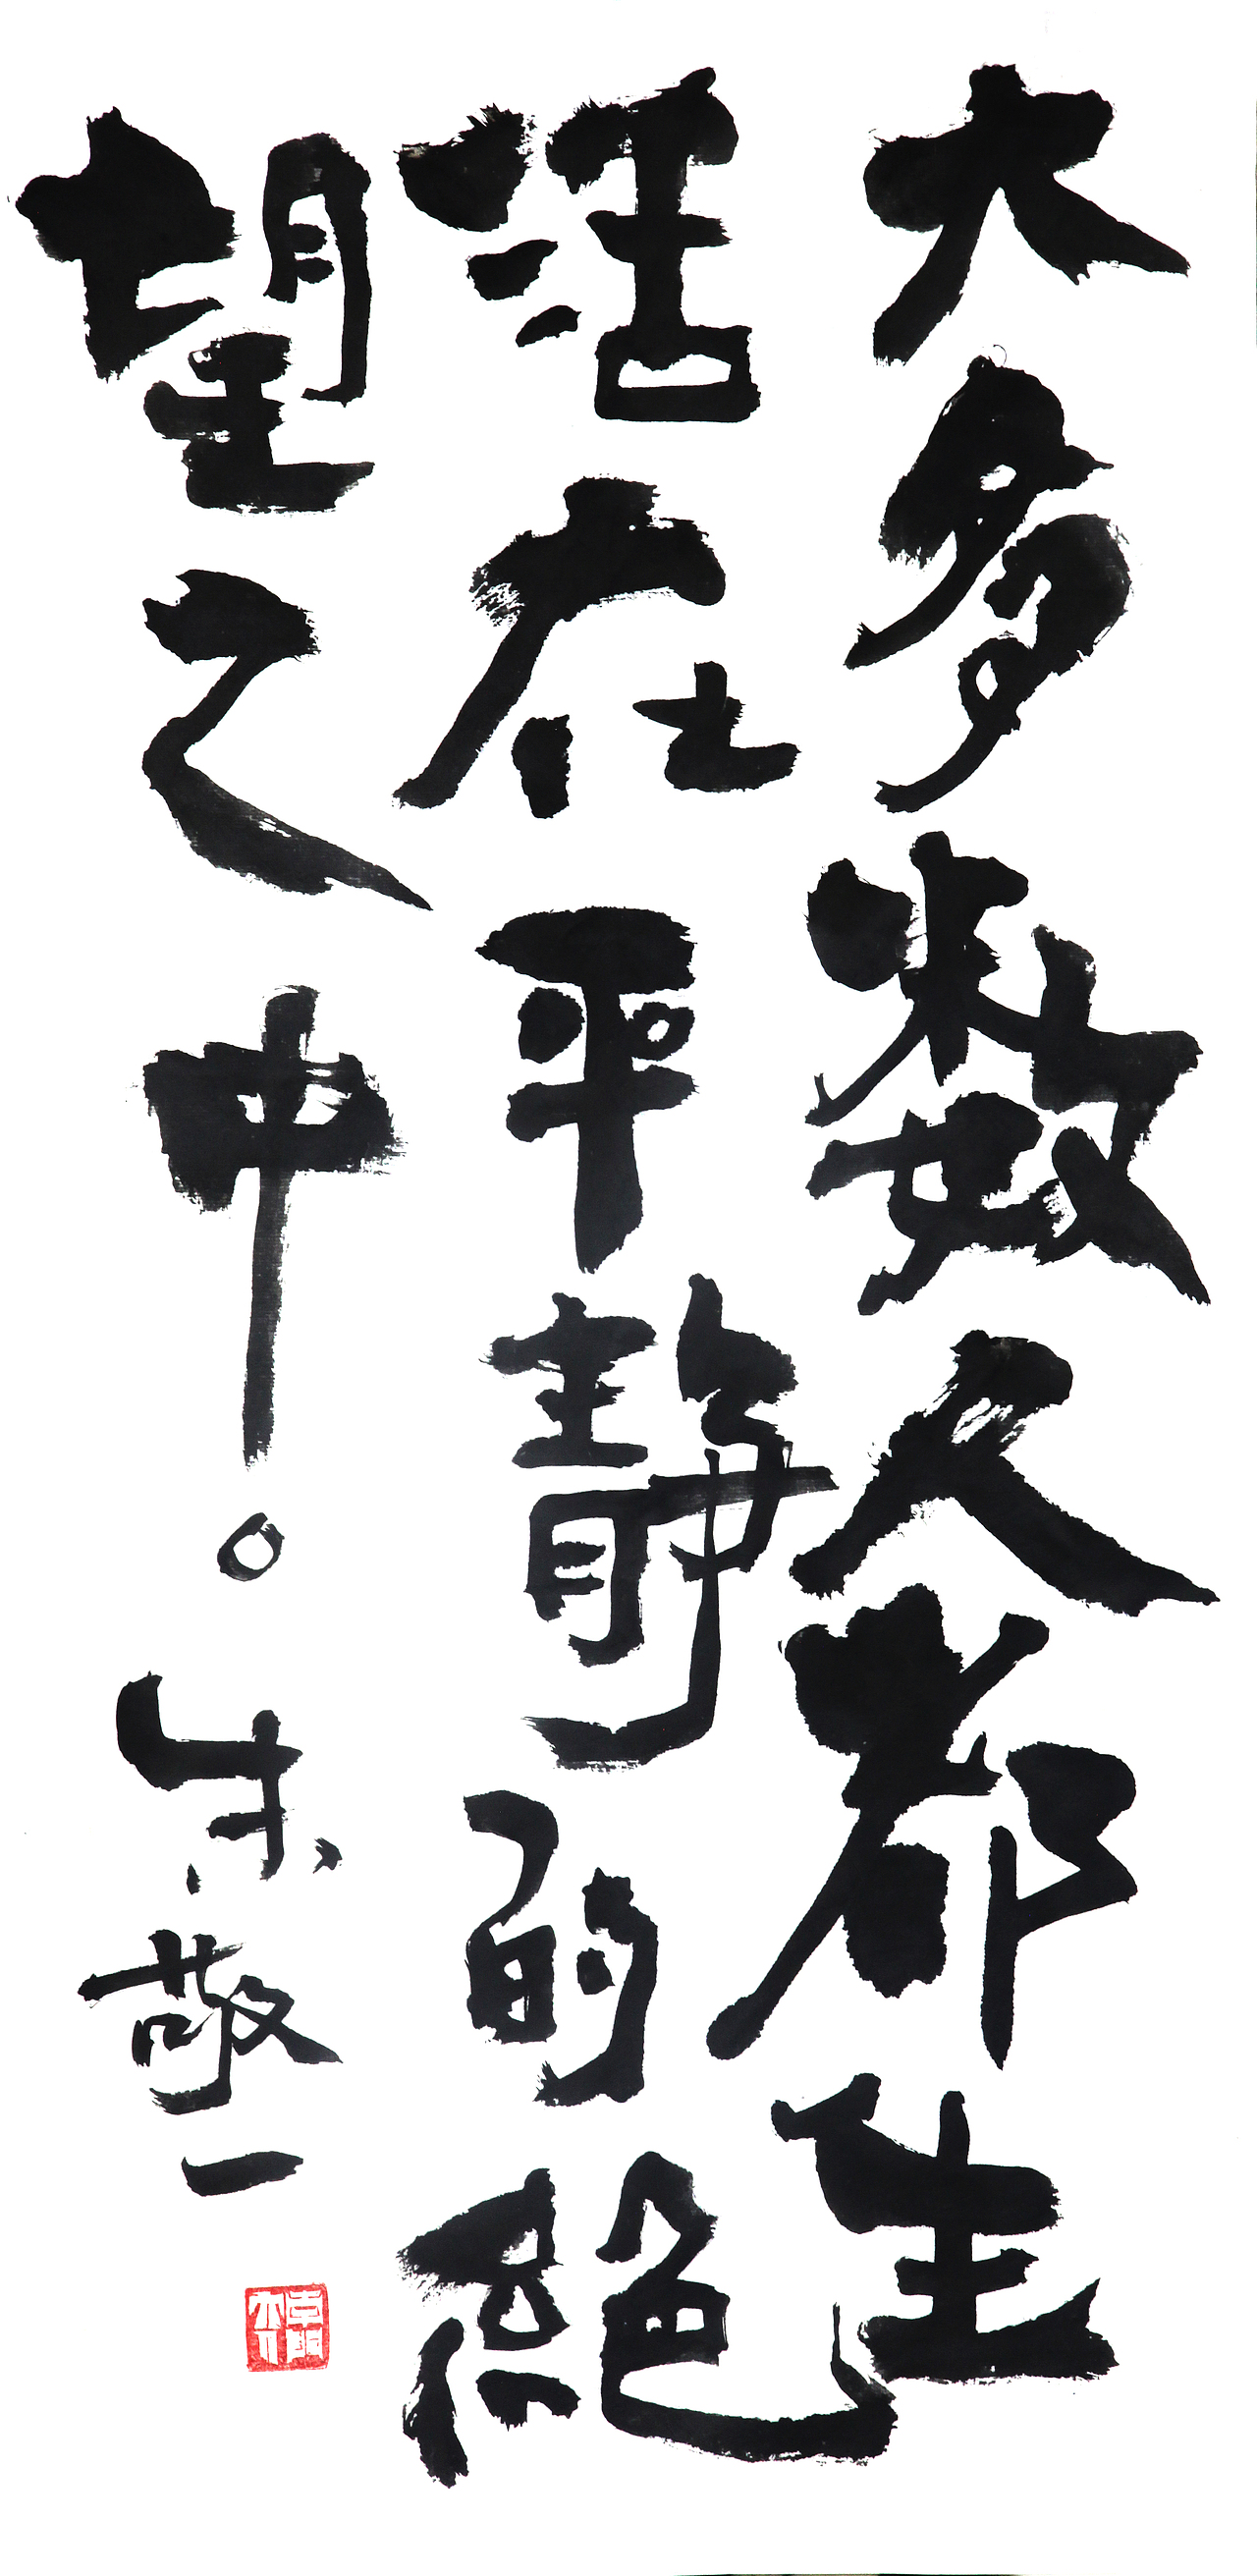 大多数人都生
活在平静的絶
望之中。朱敬一